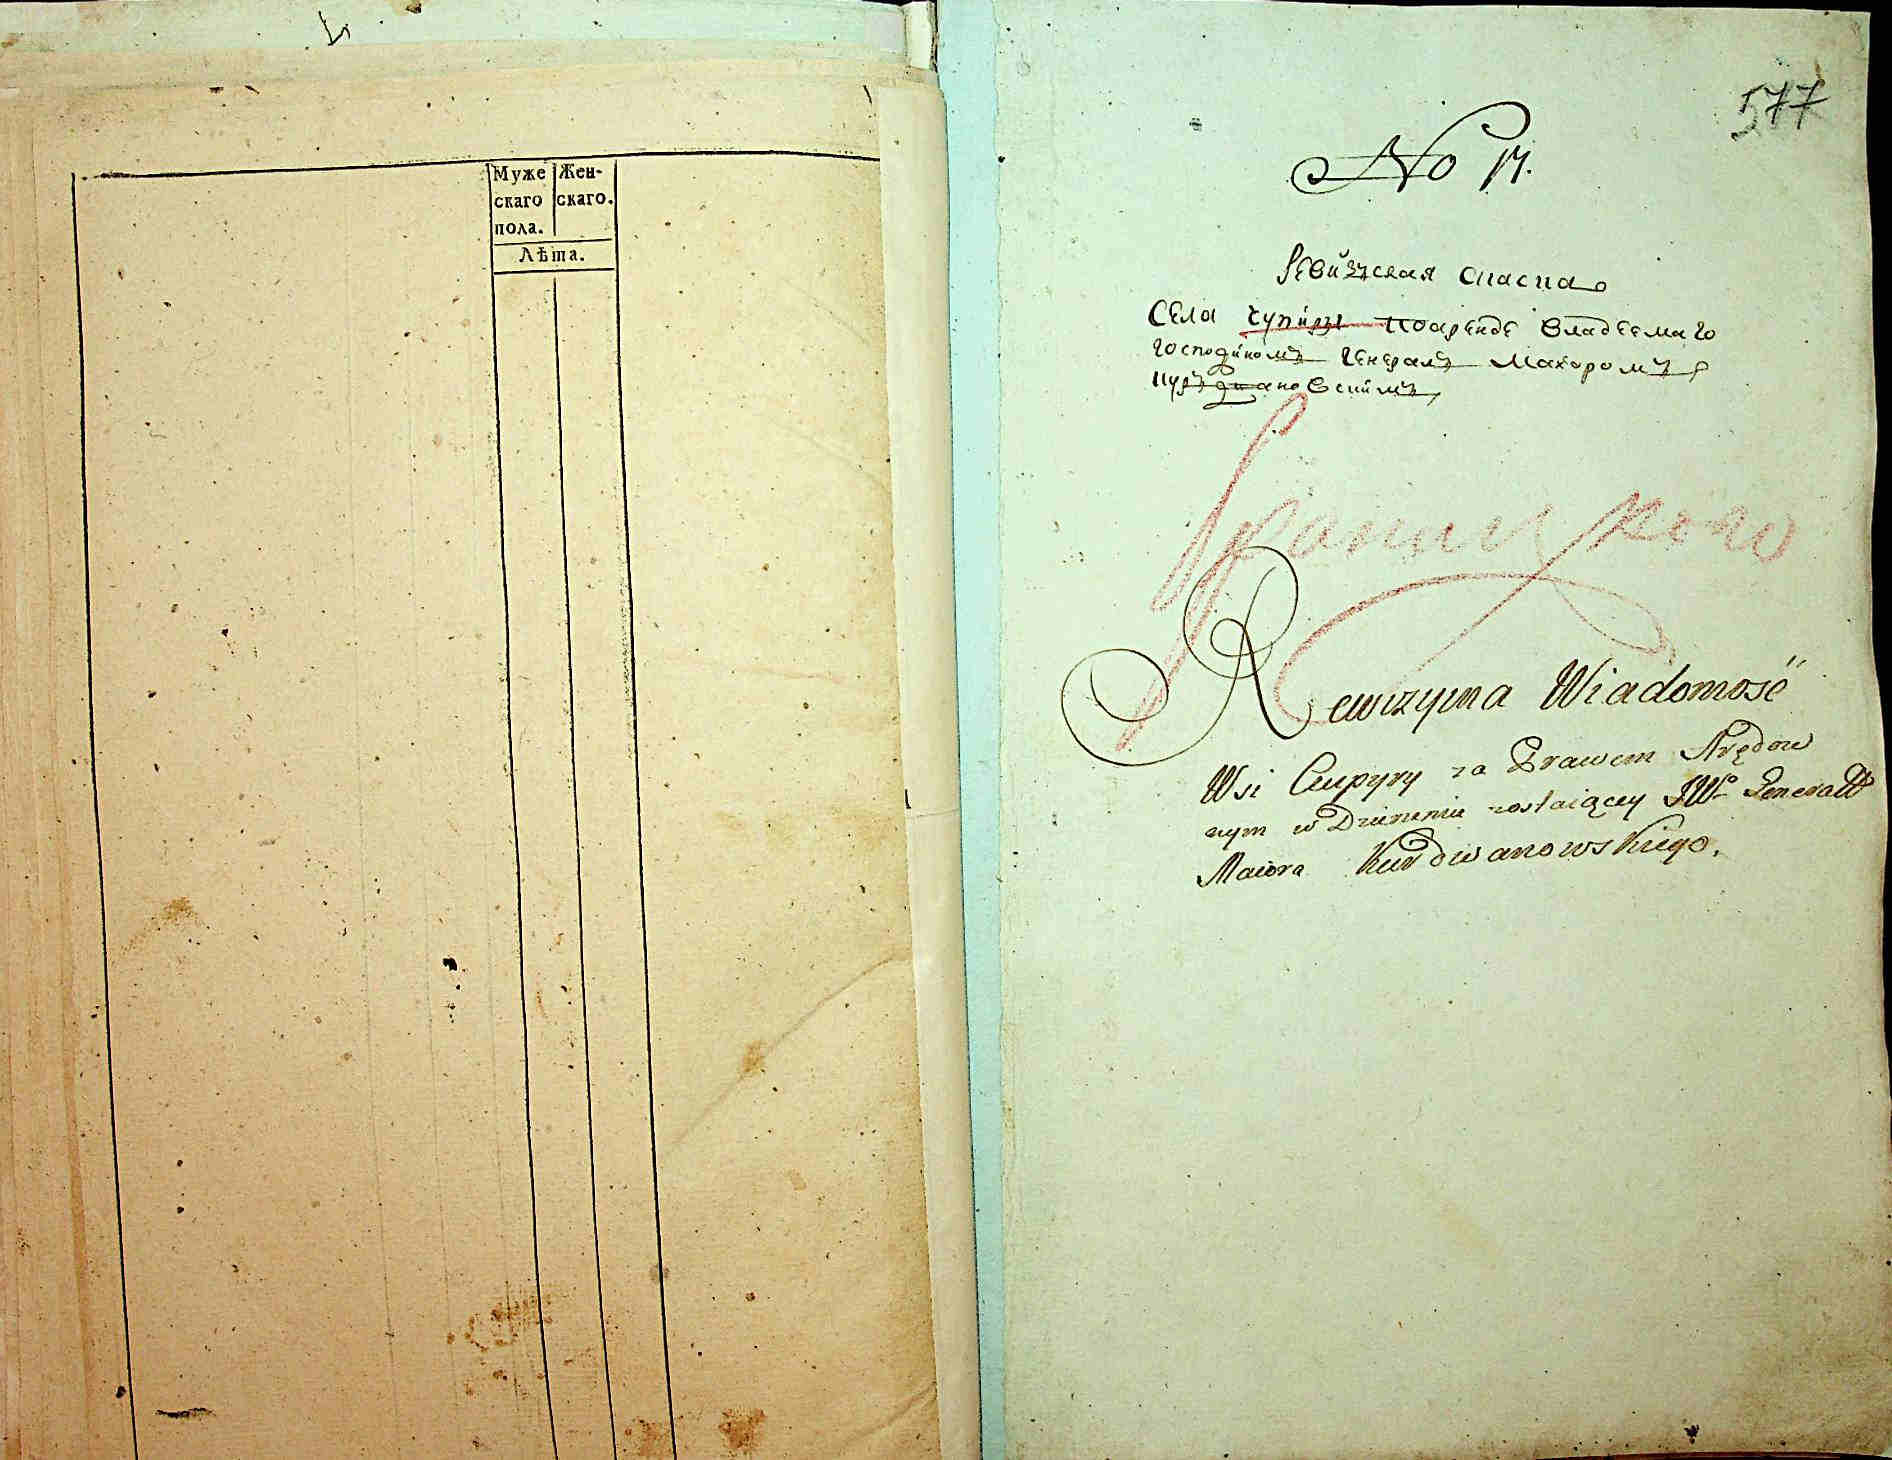 Муже Жен-
скаго скаго.
пола.
Лѣта.
577
No 17.
Ревизская сказка
Села Чупиры по аренде владеемаго
господиномъ генералъ маиоромъ
Курдвановскимъ
Браницкого
Rewizyina Wiadomość
Wsi Czupyry za Prawem Arędow
nym w Dzierżeniu zostaiącey JWo Generall
Maiora Kurdwanowskiego.